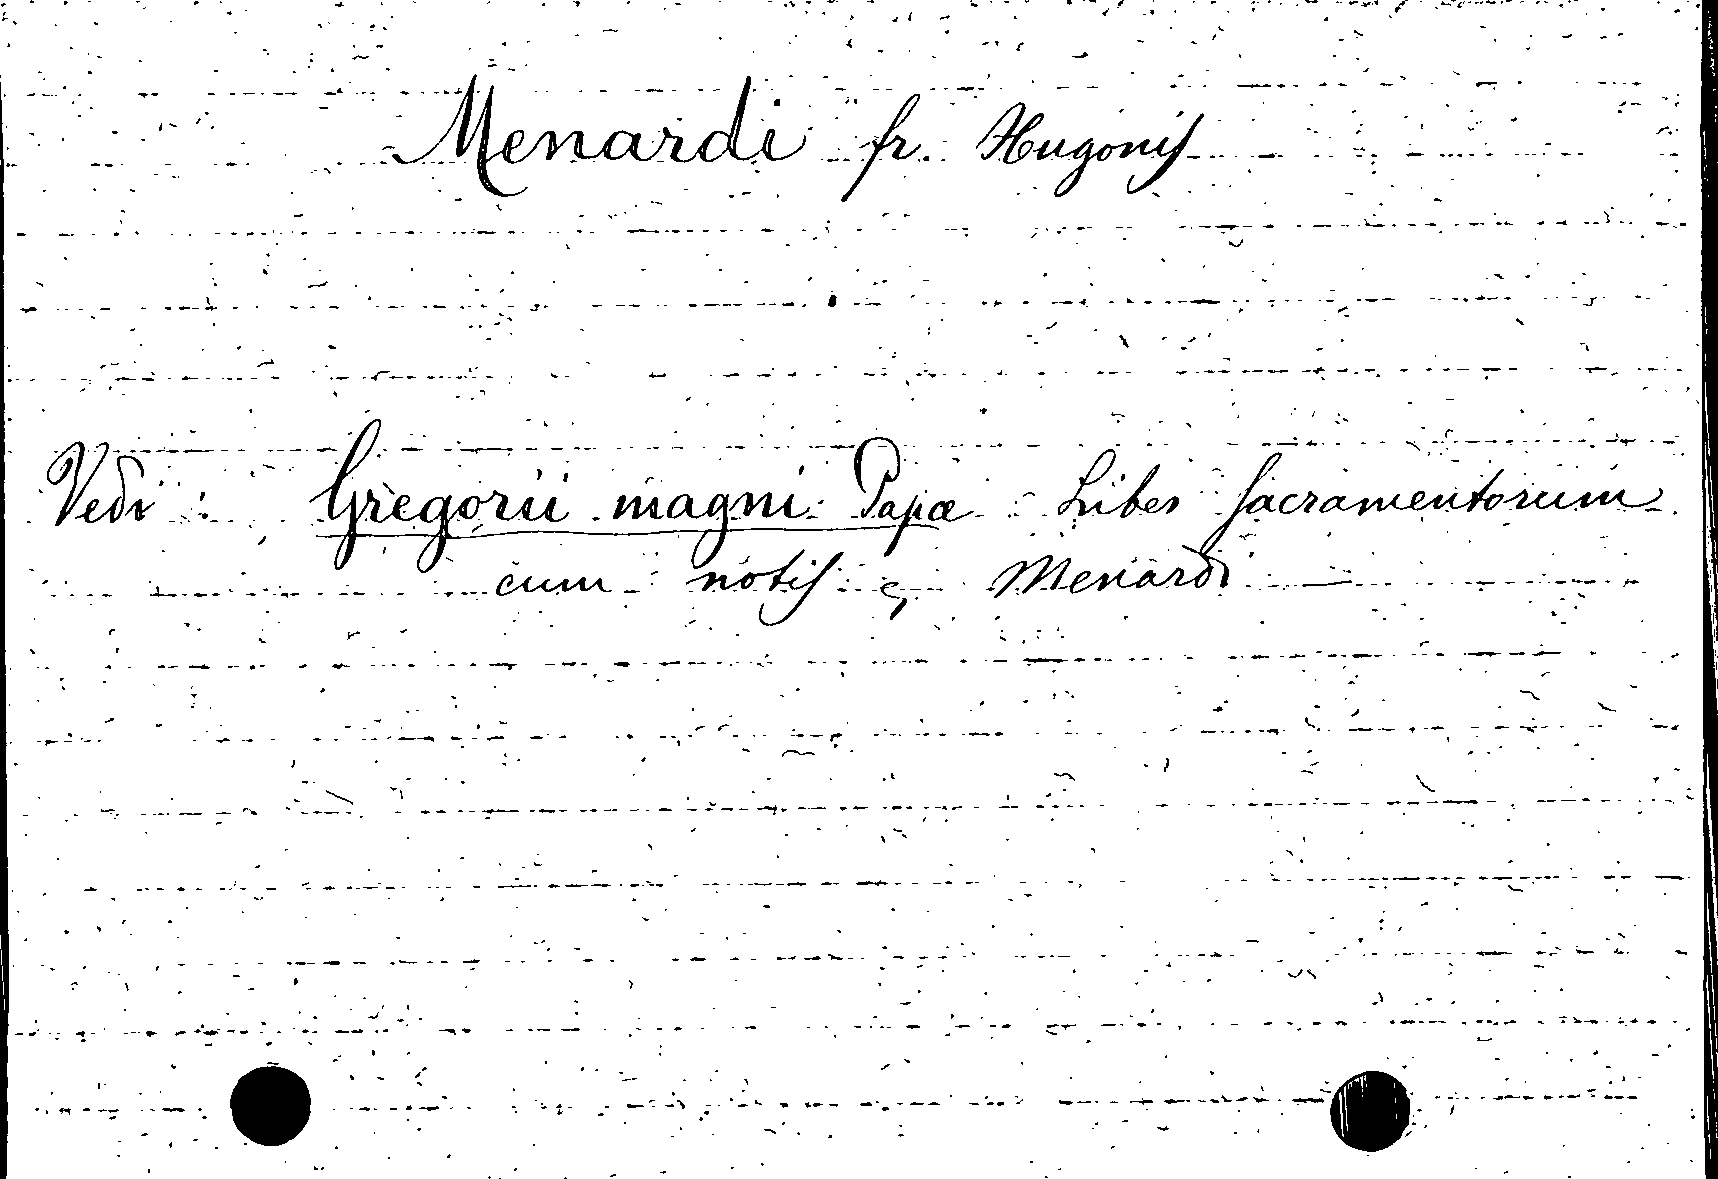 Menardi fr. Hugonis
Vedi: Gregorii magni Papæ Liber sacramentorum
cum notis Menardi